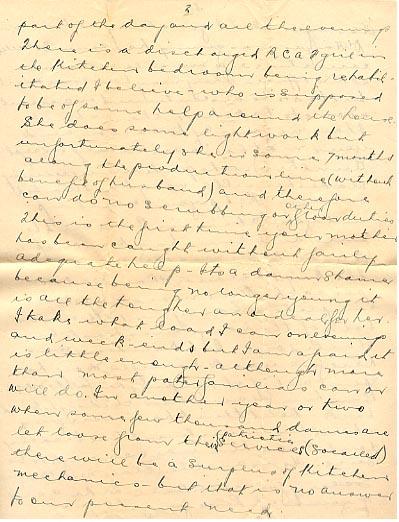 3
part of the day and all the evenings
There is a discharged RCAF girl in
the Kitchen bedroom being rehabil-
itated I believe - who is supposed
to be of some help around the house.
She does some light work but
unfortunately she is some 7 months
along the production line (without
benefit of husband) and therefore
can do no scrubbing or other floor duties
This is the first time your mother
has been caught without fairly
adequate help - Its a damn shame
because being no longer young it
is all the tougher an ordeal for her.
I take what load I can evenings
and week-ends but I am afraid it
is little enough - although more
than most pater familias can or
will do. In another year or two
when some few thousand dames are
let loose from their patriotic services (so called)
there will be a surplus of Kitchen
mechanics - but that is no answer
to our present need